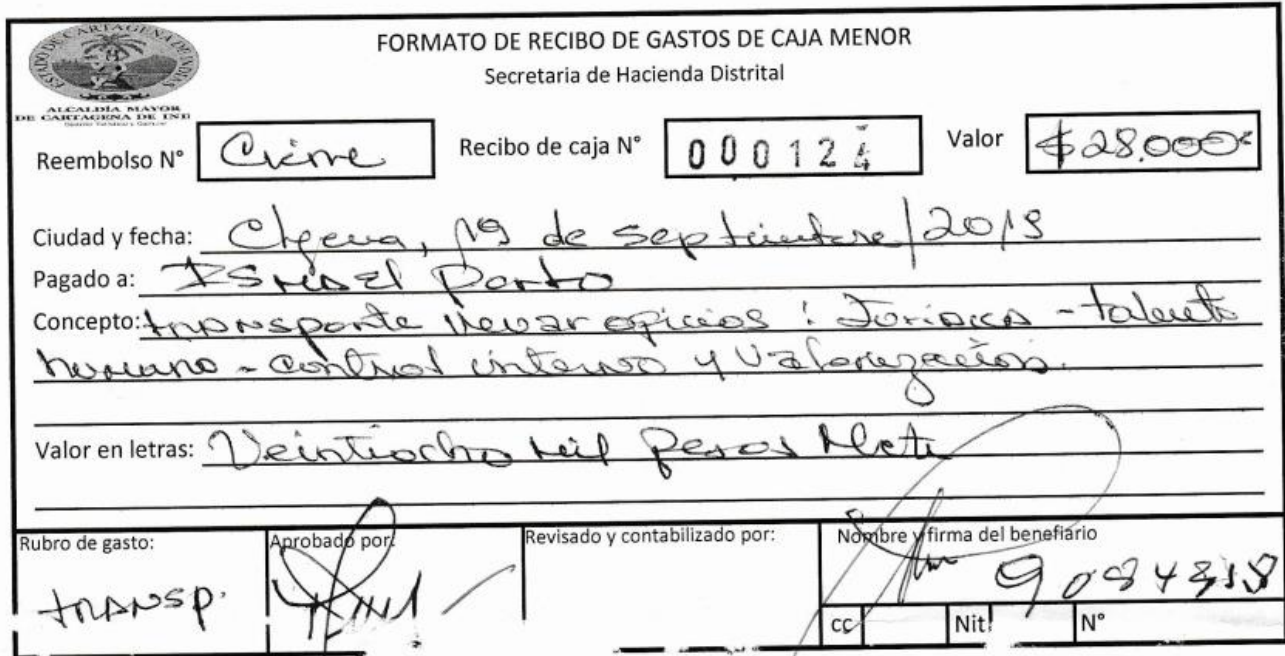 FORMATO DE RECIBO DE GASTOS DE CAJA MENOR
Secretaria de Hacienda Distrital
ALCALDÍA MAYOR
DE CARTAGENA DE IND
Reembolso N° Cierre Recibo de caja N° 000124 Valor $28.000
Ciudad y fecha: Ctgena, 19 de septiembre/2019
Pagado a: Ismael Porto
Concepto: transporte llevar oficios: Juridica - talento
humano - control interno y Valorización.
Valor en letras: Veintiocho mil pesos Mcte
Rubro de gasto: Aprobado por: Revisado y contabilizado por: Nombre y firma del benefiario
TRANSP.
CC Nit N°